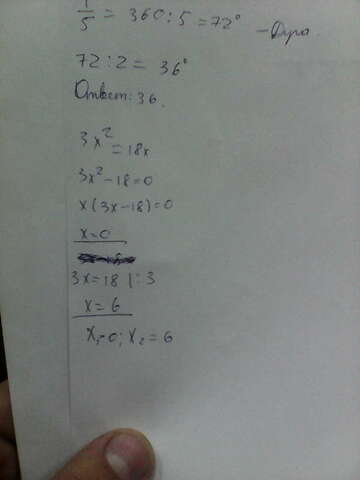 1/5 = 360:5 = 72° - Дуга
72:2 = 36°
Ответ: 36.
3x² = 18x
3x² - 18 = 0
x(3x-18) = 0
x = 0
3x = 18 | :3
x = 6
x₁ = 0; x₂ = 6